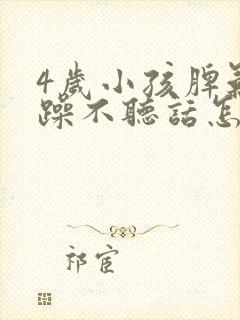 4歲小孩脾氣
躁不聽話怎
祁宦